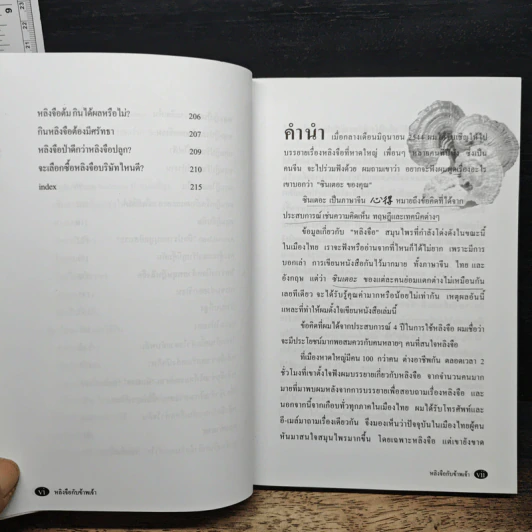 หลิงจือต้ม กินได้ผลหรือไม่? 206
กินหลิงจือต้องมีศรัทธา 207
หลิงจือป่าดีกว่าหลิงจือปลูก? 209
จะเลือกซื้อหลิงจือบริษัทไหนดี? 210
index 215
vi หลิงจือกับข้าพเจ้า
คำนำ เมื่อกลางเดือนมิถุนายน 2544
บรรยายเรื่องหลิงจือที่หาดใหญ่ เพื่อนๆ ซึ่งเป็น
คนจีน จะไปร่วมฟังด้วย ผมถามเขาว่า อยากจะฟังผมพูดเรื่องอะไร
เขาบอกว่า "ซินเตอะ ของคุณ"
ซินเตอะ เป็นภาษาจีน 心得 หมายถึงข้อคิดที่ได้จาก
ประสบการณ์ เช่นความคิดเห็น ทฤษฎีและเทคนิคต่างๆ
ข้อมูลเกี่ยวกับ "หลิงจือ" สมุนไพรที่กำลังโด่งดังในขณะนี้
ในเมืองไทย เราจะฟังหรืออ่านจากที่ไหนก็ได้ไม่ยาก เพราะมีการ
บอกเล่า การเขียนหนังสือกันไว้มากมาย ทั้งภาษาจีน ไทย และ
อังกฤษ แต่ว่า ซินเตอะ ของแต่ละคนย่อมแตกต่างไม่เหมือนกัน
เลยทีเดียว จะได้รับรู้คุณค่ามากหรือน้อยไม่เท่ากัน เหตุผลอันนี้
แหละที่ทำให้ผมตั้งใจเขียนหนังสือเล่มนี้
ข้อคิดที่ผมได้จากประสบการณ์ 4 ปีในการใช้หลิงจือ ผมเชื่อว่า
จะมีประโยชน์มากพอสมควรกับคนหลายๆ คนที่สนใจหลิงจือ
ที่เมืองหาดใหญ่มีคน 100 กว่าคน ต่างอาชีพกัน ตลอดเวลา 2
ชั่วโมงที่เขาตั้งใจฟังผมบรรยายเกี่ยวกับหลิงจือ จากจำนวนคนมาก
มายที่มาพบผมหลังจากการบรรยายเพื่อสอบถามเรื่องหลิงจือ และ
นอกจากนี้จากเกือบทั่วทุกภาคในเมืองไทย ผมได้รับโทรศัพท์และ
อี-เมล์มาถามเรื่องเดียวกัน จึงมองเห็นว่าปัจจุบันในเมืองไทยผู้คน
หันมาสนใจสมุนไพรมากขึ้น โดยเฉพาะหลิงจือ แต่เขายังขาด
หลิงจือกับข้าพเจ้า vii